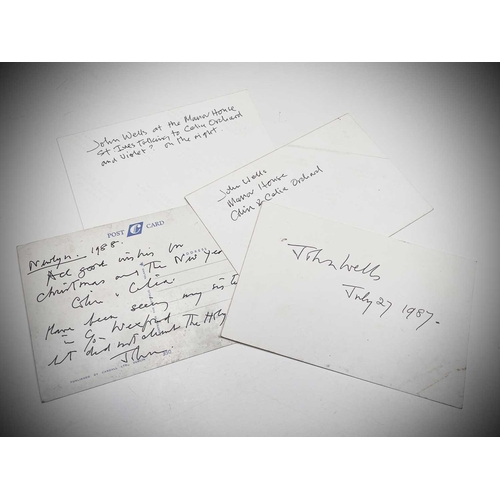 John Wells at the Manor House
St Ives talking to Colin Orchard
and Violet? on the right
John Wells
Manor House
Colin & Celia Orchard
POST CARD
ADDRESS
Newlyn. 1988.
All good wishes for
Christmas and the New Year
Colin & Celia
Have been seeing
Wexford
it did not
John
John Wells
July 27 1987.